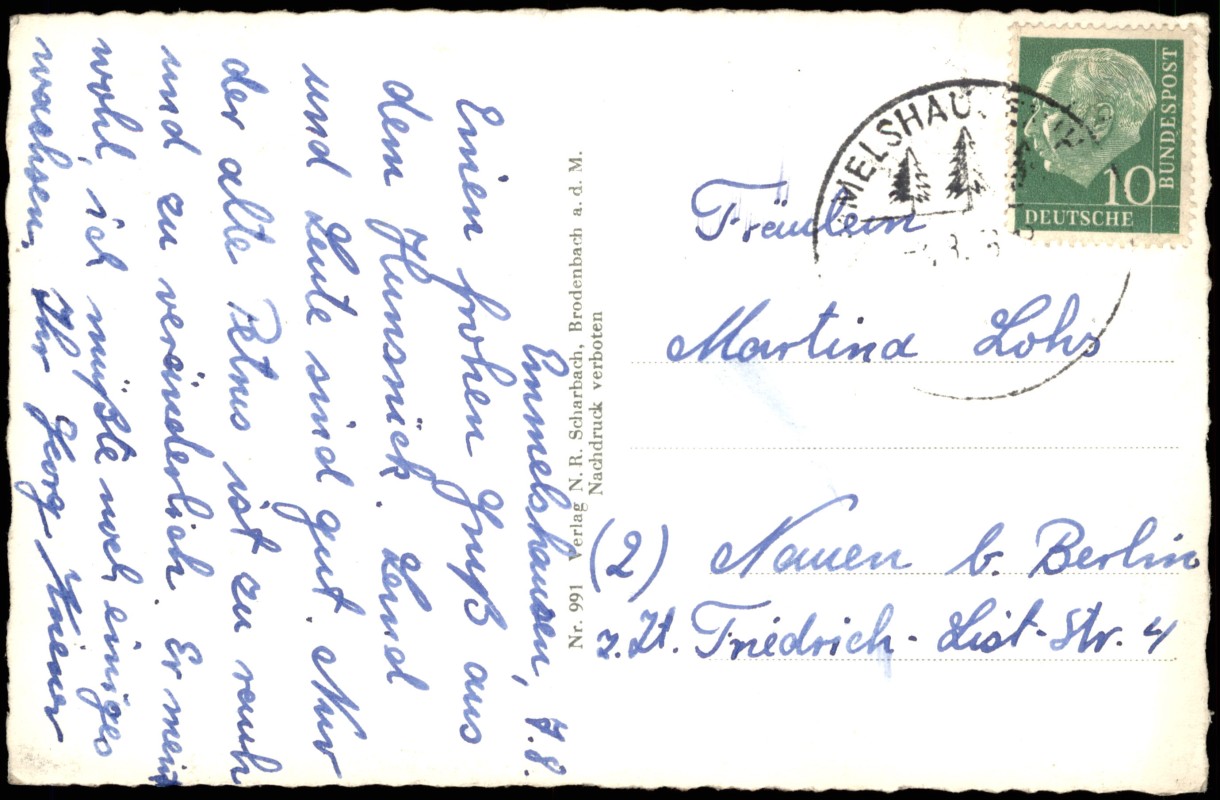 Emmelshausen, 7.8.
Einen frohen Gruß aus
dem Hunsrück. Land
und Leute sind gut. Nur
der alte Petrus ist zu rauh
und zu veränderlich. Er meint
wohl ich müßte noch einiges
wachsen.
Ihr Georg
Nr. 991 Verlag N. R. Scharbach, Brodenbach a. d. M.
Nachdruck verboten
MELSHAU
DEUTSCHE
BUNDESPOST
10
Fräulein
Martina Lohs
(2) Nauen b. Berlin
z. Zt. Friedrich-List-Str. 4